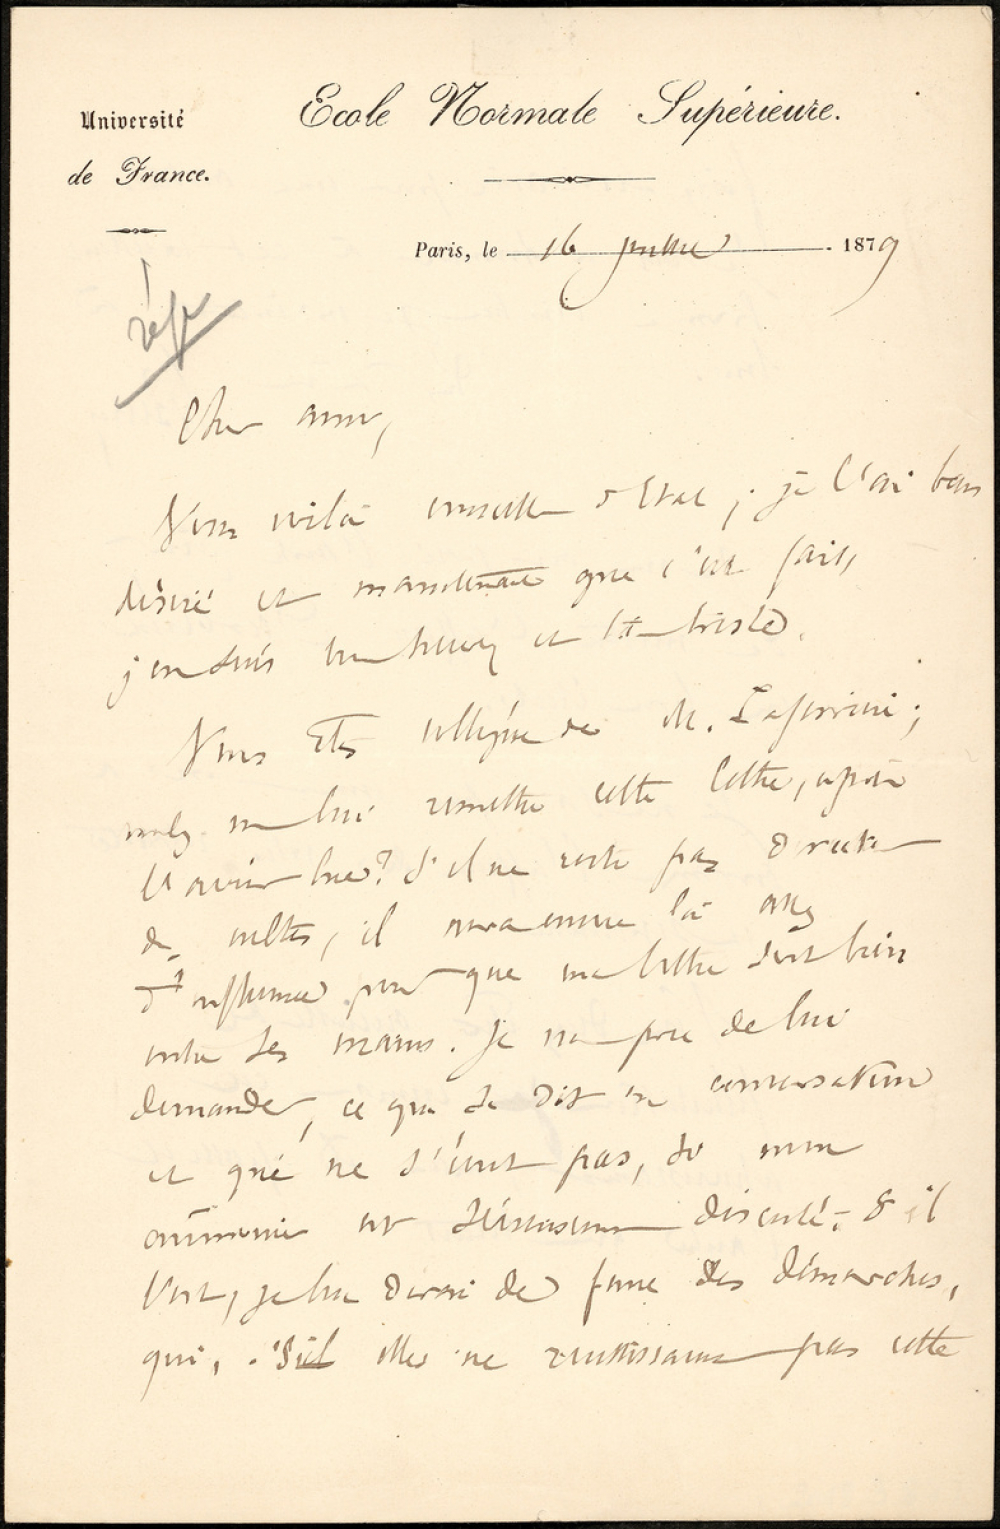 Université
de France.
Ecole Normale Supérieure.
Paris, le 16 juillet 1879
rép
Cher ami,
Vous voilà conseiller d'Etat ; je l'ai bcoup
désiré et maintenant que c'est fait,
j'en suis bien heureux et triste.
Vous êtes collègue de M. Laferrière ;
voulez vous lui remettre cette lettre, après
l'avoir lue ? S'il ne reste pas directeur
des cultes, il aura encore là assez
d'influence pour que ma lettre soit bien
entre ses mains. Je vous prie de lui
demander, ce qui se dit en conversation
et qui ne s'écrit pas, si mon
aumônier est sérieusement discuté ; S'il
l'est, je lui dirai de faire des démarches,
qui, si elles ne réussissaient pas cette